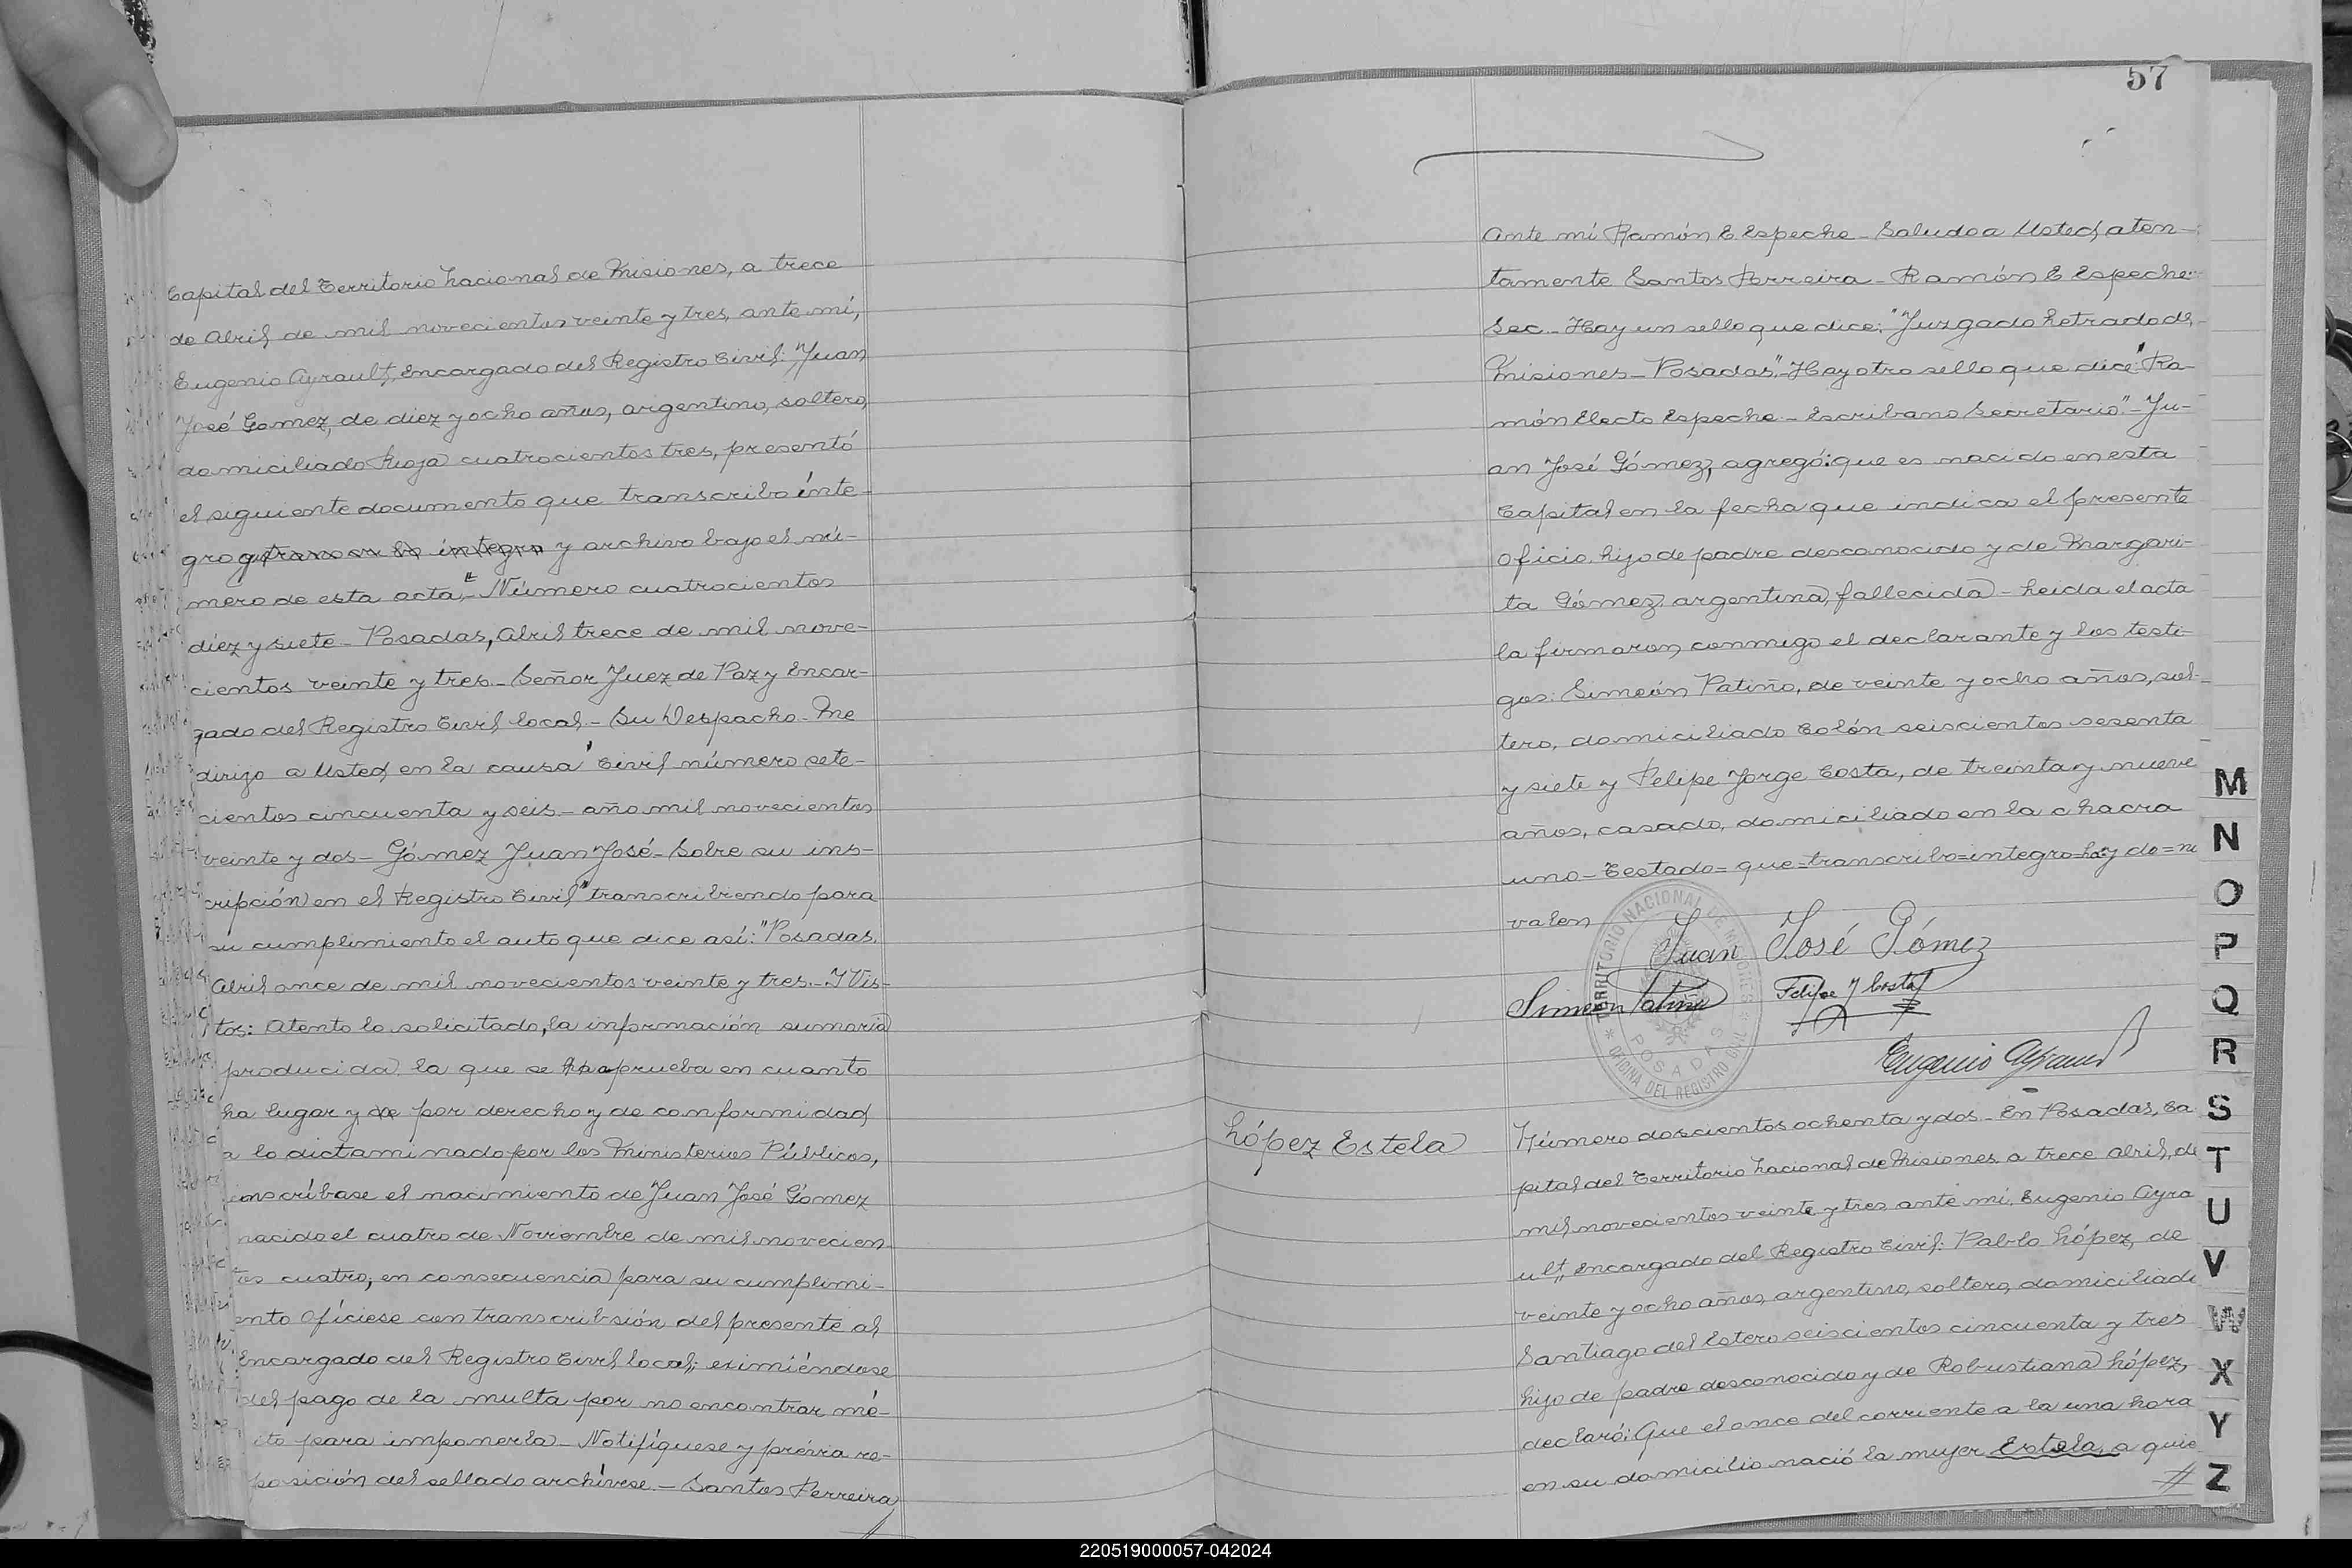 Capital del Territorio Nacional de Misiones, a trece
de Abril de mil novecientos veinte y tres, ante mí,
Eugenio Ayrault, Encargado del Registro Civil: "Juan
José Gomez, de diez y ocho años, argentino, soltero,
domiciliado Rioja cuatrocientos tres, presentó
el siguiente documento que transcribo ínte-
gro que transcribo integro y archivo bajo el nú-
mero de esta acta:"- Número cuatrocientos
diez y siete - Posadas, Abril trece de mil nove-
cientos veinte y tres - Señor Juez de Paz y Encar-
gado del Registro Civil local - Su Despacho - Me
dirijo a Usted en la causa Civil número sete-
cientos cincuenta y seis - año mil novecientos
veinte y dos - Gómez Juan José - Sobre su ins-
cripción en el Registro Civil" transcribiendo para
su cumplimiento el auto que dice así: "Posadas,
Abril once de mil novecientos veinte y tres - Y Vis-
tos: Atento lo solicitado, la información sumaria
producida la que se aprueba en cuanto
ha lugar y de por derecho y de conformidad
a lo dictaminado por los Ministerios Públicos,
inscríbase el nacimiento de Juan José Gómez
nacido el cuatro de Noviembre de mil novecien-
tos cuatro, en consecuencia para su cumplimi-
ento ofíciese con transcribsión del presente al
Encargado del Registro Civil local; eximiéndose
del pago de la multa por no encontrar mé-
ito para imponerla - Notifíquese y prévia re-
posición del sellado archívese - Santos Perreira
57
Ante mí Ramón E Espeche - Saludo a Usted, aten-
tamente Santos Perreira - Ramón E Espeche
Sec - Hay un sello que dice: "Juzgado Letrado de
Misiones - Posadas" - Hay otro sello que dice "Ra-
món Electo Espeche - Escribano Secretario" - Ju-
an José Gómez, agregó: que es nacido en esta
Capital en la fecha que indica el presente
oficio, hijo de padre desconocido y de Margari-
ta Gómez, argentina, fallecida - Leida el acta
la firmaron conmigo el declarante y los testi-
gos: Simeón Patiño, de veinte y ocho años, sol-
tero, domiciliado Colón seiscientos sesenta
y siete y Felipe Jorge Costa, de treinta y nueve
años, casado, domiciliado en la chacra
uno - Testado = que = transcribo = integro =
valen
Juan José Gómez
Simeon Patiño Felipe J Costa
Eugenio Ayrault
TERRITORIO NACIONAL DE MISIONES
POSADAS
OFICINA DEL REGISTRO CIVIL
López Estela
Número doscientos ochenta y dos - En Posadas, Ca
pital del Territorio Nacional de Misiones a trece Abril, de
mil novecientos veinte y tres, ante mí, Eugenio Ayra
ult, Encargado del Registro Civil: Pablo López, de
veinte y ocho años, argentino, soltero, domiciliado
Santiago del Estero seiscientos cincuenta y tres
hijo de padre desconocido y de Robustiana López,
declaró: Que el once del corriente a la una hora
en su domicilio nació la mujer Estela, a quie
M
N
O
P
Q
R
S
T
U
V
W
X
Y
Z
220519000057-042024